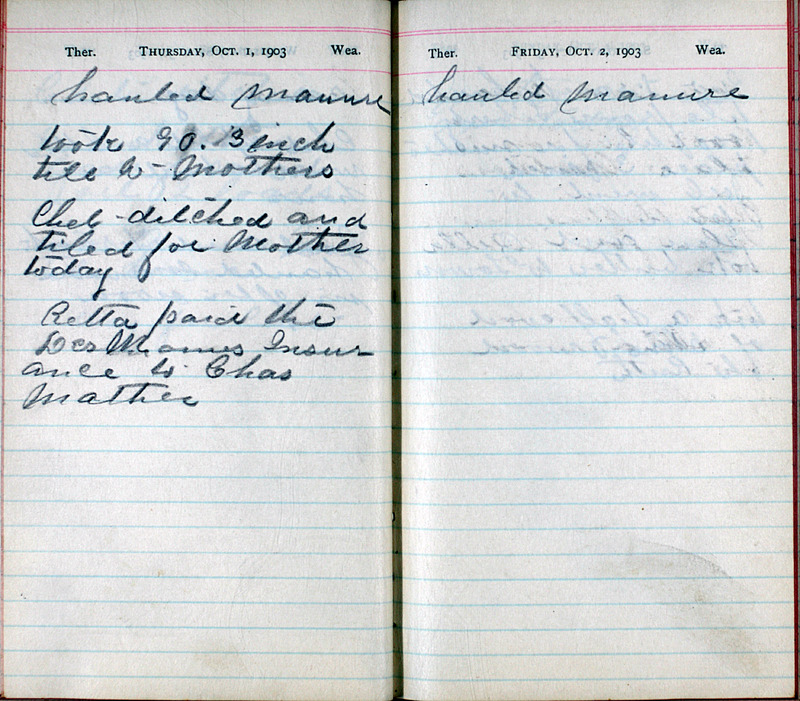 Ther. THURSDAY, OCT. 1, 1903 Wea.
hauled manure
took 90. 3 inch
tile to Mothers
Chet ditched and
tiled for Mother
today
Retta paid the
Des Moines Insur
ance to Chas
Mather
Ther. FRIDAY, OCT. 2, 1903 Wea.
hauled manure